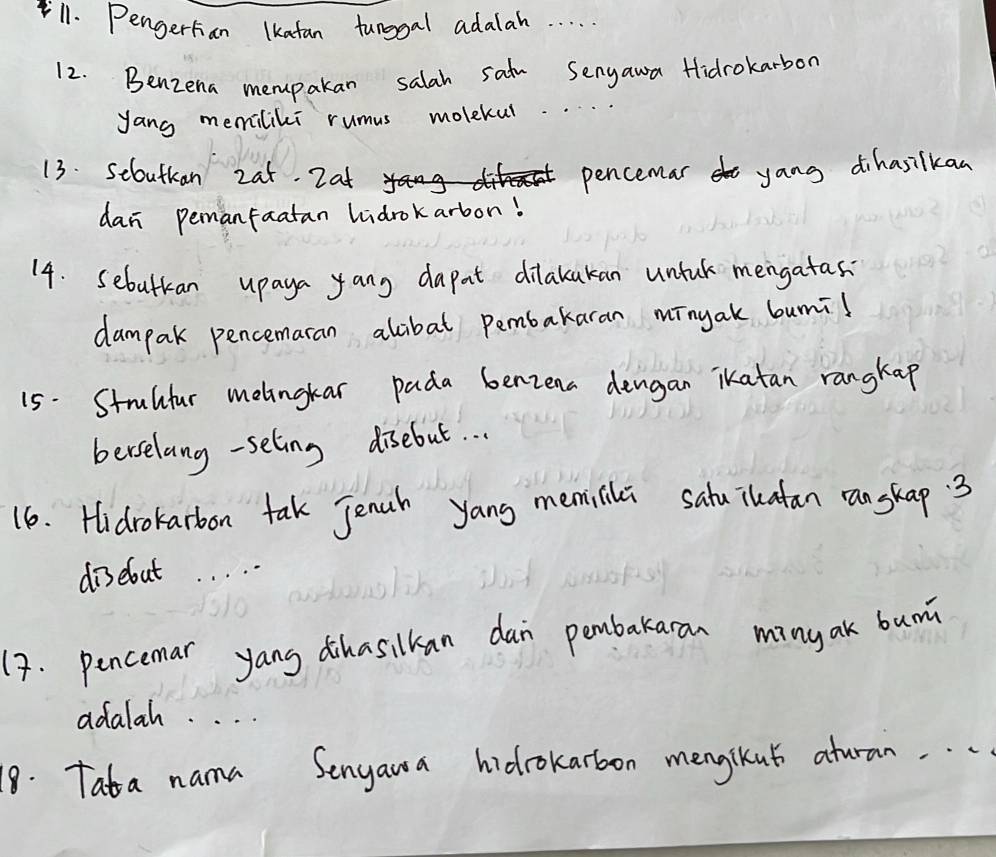 11. Pengertian Ikatan tunggal adalah .....
12. Benzena merupakan salah satu Senyawa Hidrokarbon
yang memiliki rumus molekul .....
13. Sebutkan zat-zat yang dibuat pencemar do yang dihasilkan
dari pemanfaatan hidrokarbon!
14. Sebutkan upaya yang dapat dilakukan untuk mengatasi
dampak pencemaran akibat Pembakaran minyak bumi!
15. Struktur melingkar pada benzena dengan ikatan rangkap
berselang-seling disebut...
16. Hidrokarbon tak jenuh yang memiliki satu ikatan rangkap 3
disebut .....
17. pencemar yang dihasilkan dari pembakaran minyak bumi
adalah ....
18. Tata nama Senyawa hidrokarbon mengikuti aturan ....